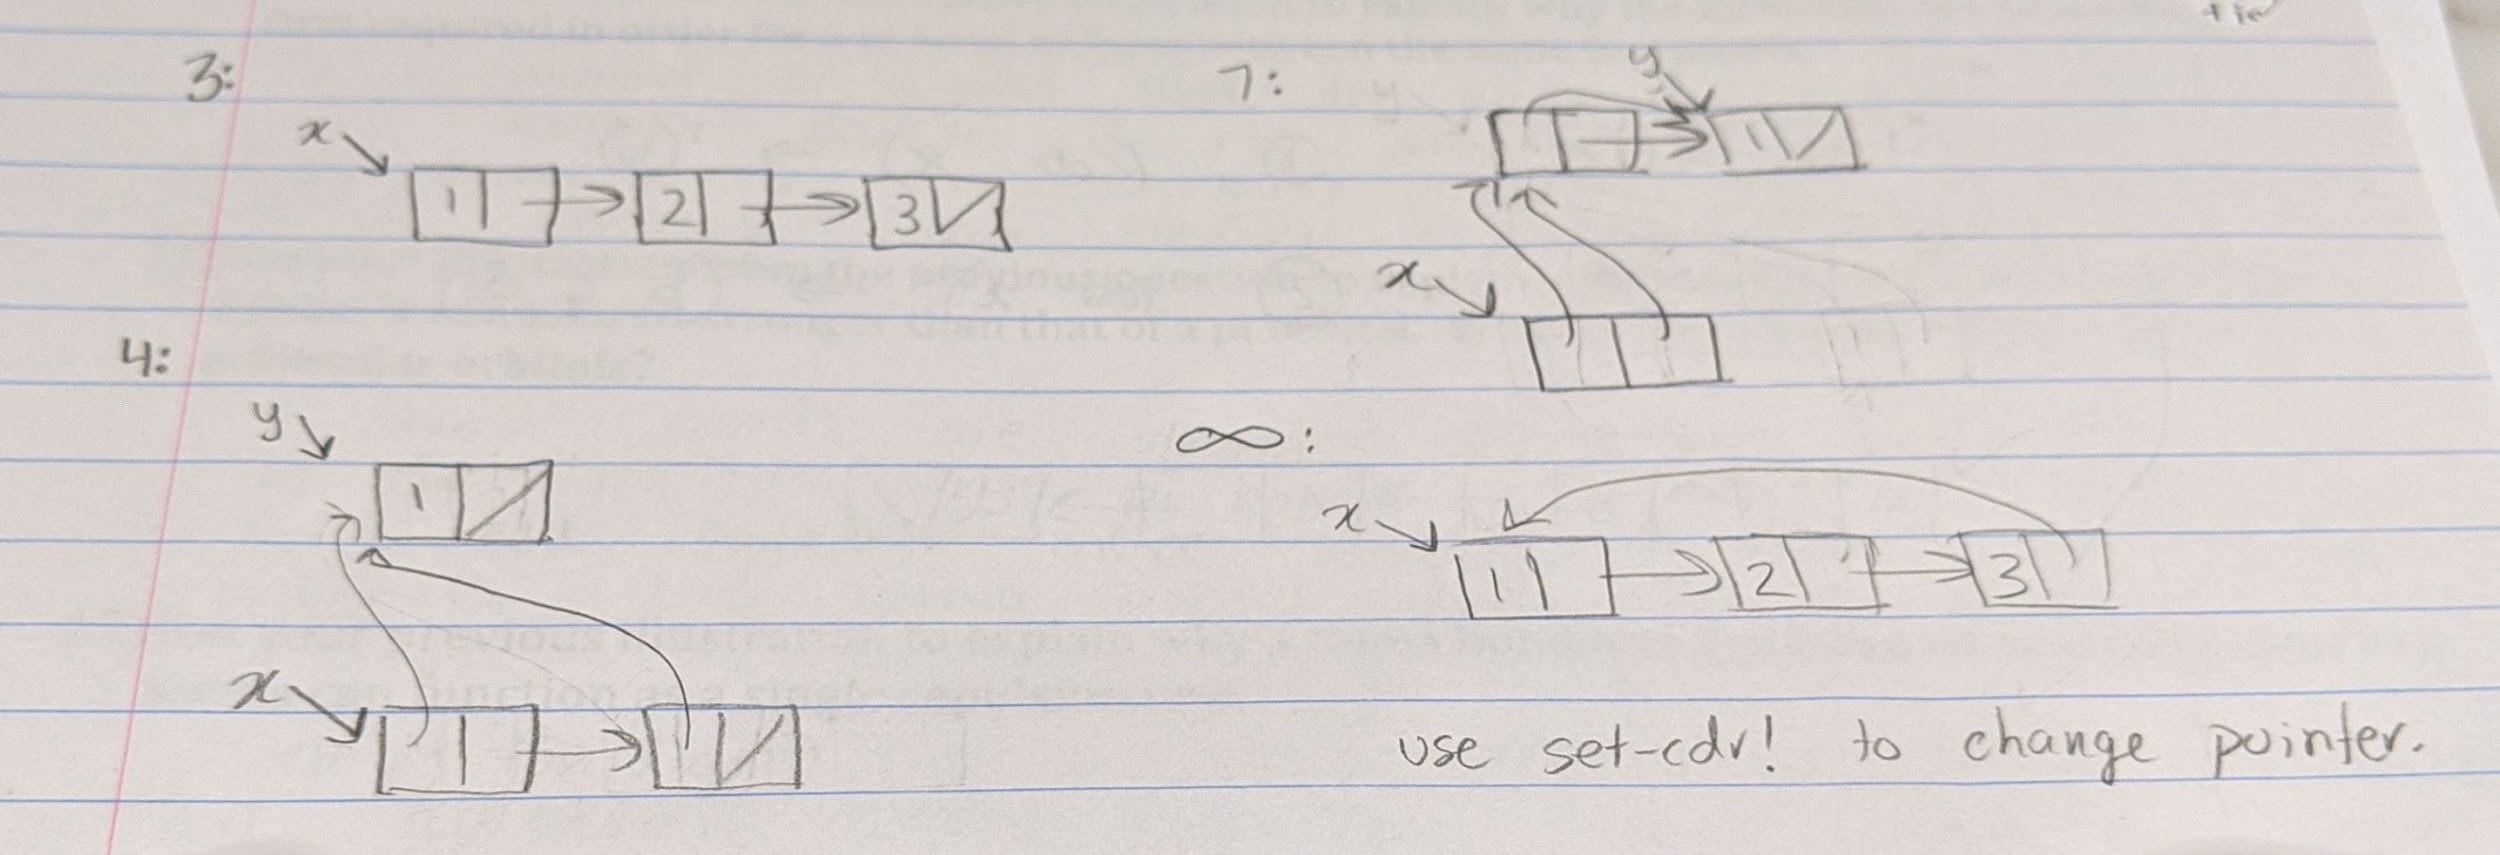 3:
x
1 2 3
4:
y
1
x
7:
y
1
x
∞:
x
1 2 3
use set-cdr! to change pointer.